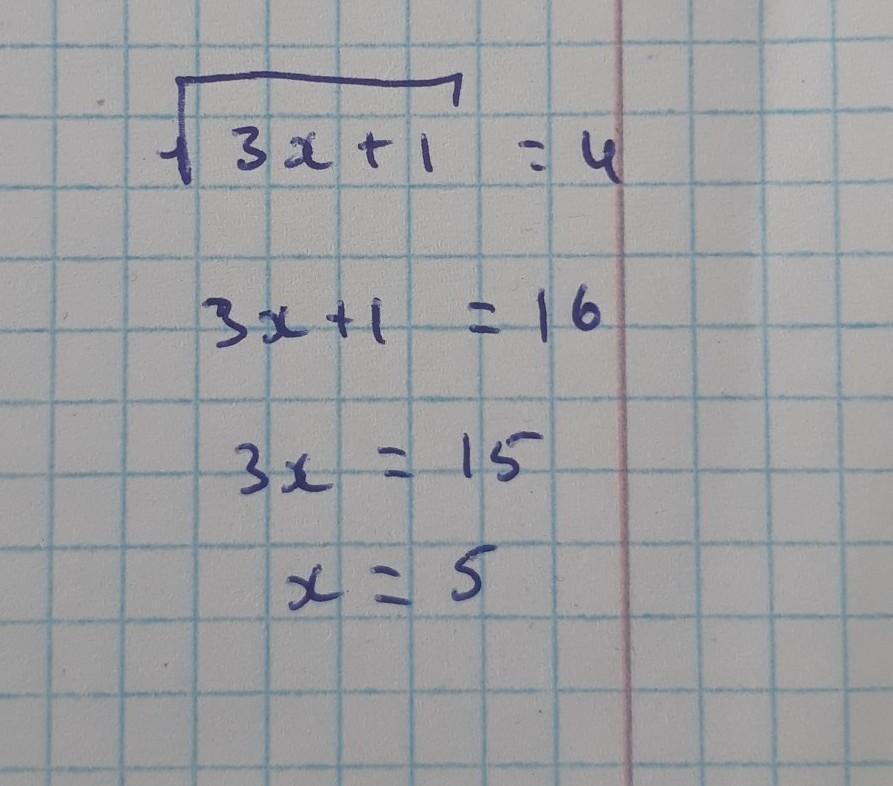 √(3x + 1) = 4
3x + 1 = 16
3x = 15
x = 5